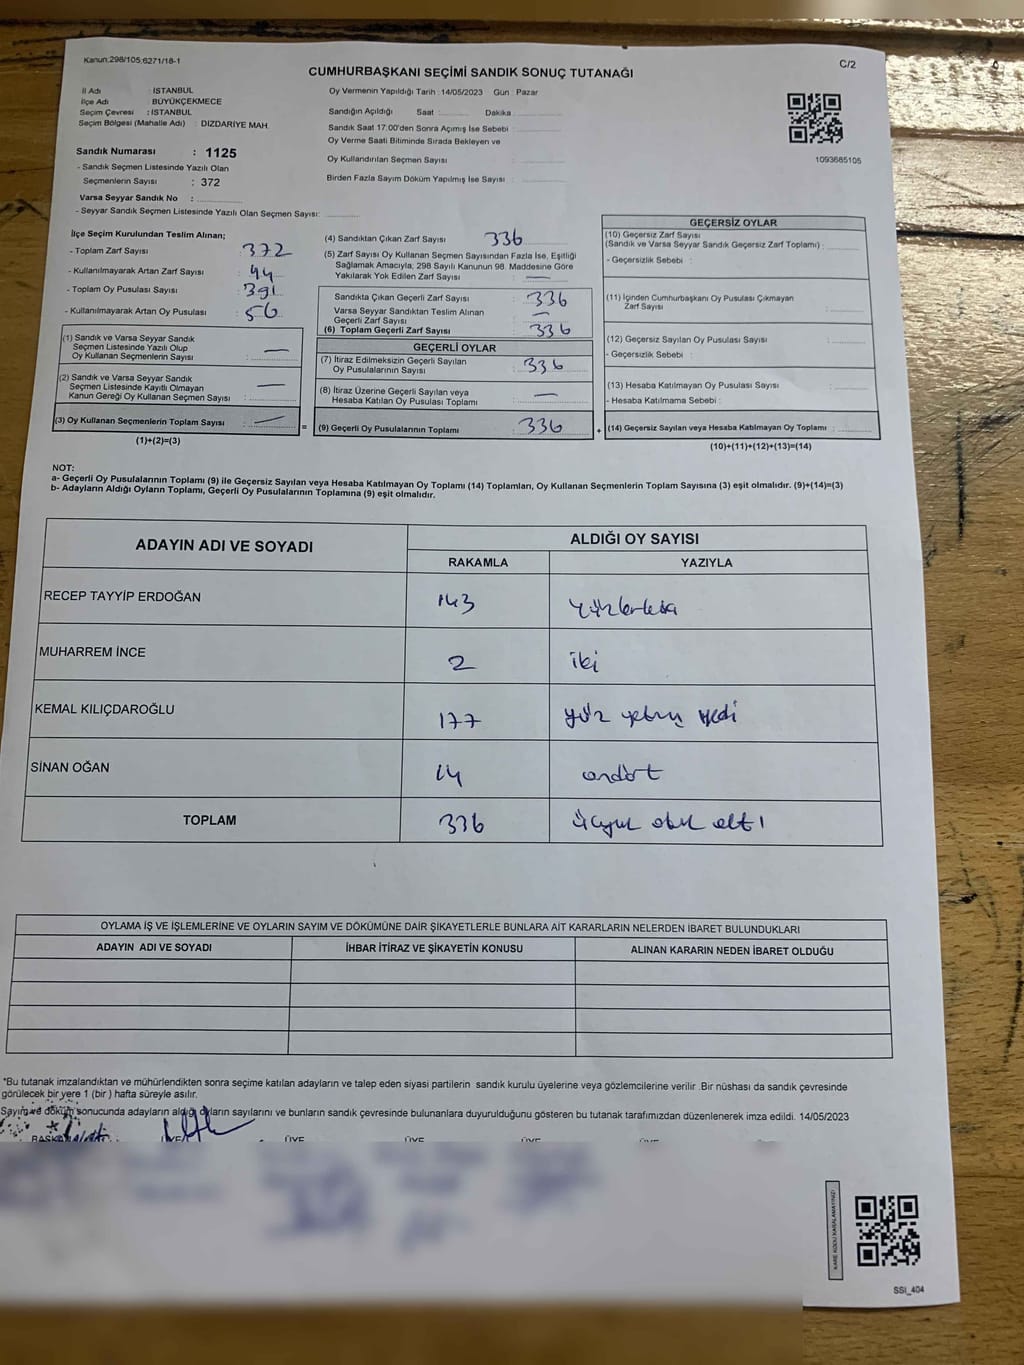 Kanun:298/105;6271/18-1
C/2
CUMHURBAŞKANI SEÇİMİ SANDIK SONUÇ TUTANAĞI
İl Adı : İSTANBUL
İlçe Adı : BÜYÜKÇEKMECE
Seçim Çevresi : İSTANBUL
Seçim Bölgesi (Mahalle Adı) : DİZDARİYE MAH.
Sandık Numarası : 1125
- Sandık Seçmen Listesinde Yazılı Olan
Seçmenlerin Sayısı : 372
Varsa Seyyar Sandık No :
- Seyyar Sandık Seçmen Listesinde Yazılı Olan Seçmen Sayısı:
Oy Vermenin Yapıldığı Tarih : 14/05/2023 Gün : Pazar
Sandığın Açıldığı Saat : Dakika
Sandık Saat 17:00'den Sonra Açımış İse Sebebi :
Oy Verme Saati Bitiminde Sırada Bekleyen ve
Oy Kullandırılan Seçmen Sayısı :
Birden Fazla Sayım Döküm Yapılmış İse Sayısı :
1093685105
İlçe Seçim Kurulundan Teslim Alınan;
- Toplam Zarf Sayısı : 372
- Kullanılmayarak Artan Zarf Sayısı : 44
- Toplam Oy Pusulası Sayısı : 391
- Kullanılmayarak Artan Oy Pusulası : 56
(1) Sandık ve Varsa Seyyar Sandık
Seçmen Listesinde Yazılı Olup
Oy Kullanan Seçmenlerin Sayısı : —
(2) Sandık ve Varsa Seyyar Sandık
Seçmen Listesinde Kayıtlı Olmayan
Kanun Gereği Oy Kullanan Seçmen Sayısı : —
(3) Oy Kullanan Seçmenlerin Toplam Sayısı : —
(1)+(2)=(3)
=
(4) Sandıktan Çıkan Zarf Sayısı 336
(5) Zarf Sayısı Oy Kullanan Seçmen Sayısından Fazla İse, Eşitliği
Sağlamak Amacıyla; 298 Sayılı Kanunun 98. Maddesine Göre
Yakılarak Yok Edilen Zarf Sayısı : —
Sandıkta Çıkan Geçerli Zarf Sayısı : 336
Varsa Seyyar Sandıktan Teslim Alınan
Geçerli Zarf Sayısı : —
(6) Toplam Geçerli Zarf Sayısı : 336
GEÇERLİ OYLAR
(7) İtiraz Edilmeksizin Geçerli Sayılan
Oy Pusulalarının Sayısı : 336
(8) İtiraz Üzerine Geçerli Sayılan veya
Hesaba Katılan Oy Pusulası Toplamı : —
(9) Geçerli Oy Pusulalarının Toplamı : 336
+
GEÇERSİZ OYLAR
(10) Geçersiz Zarf Sayısı
(Sandık ve Varsa Seyyar Sandık Geçersiz Zarf Toplamı) :
- Geçersizlik Sebebi :
(11) İçinden Cumhurbaşkanı Oy Pusulası Çıkmayan
Zarf Sayısı :
(12) Geçersiz Sayılan Oy Pusulası Sayısı :
- Geçersizlik Sebebi :
(13) Hesaba Katılmayan Oy Pusulası Sayısı :
- Hesaba Katılmama Sebebi :
(14) Geçersiz Sayılan veya Hesaba Katılmayan Oy Toplamı :
(10)+(11)+(12)+(13)=(14)
NOT:
a- Geçerli Oy Pusulalarının Toplamı (9) ile Geçersiz Sayılan veya Hesaba Katılmayan Oy Toplamı (14) Toplamları, Oy Kullanan Seçmenlerin Toplam Sayısına (3) eşit olmalıdır. (9)+(14)=(3)
b- Adayların Aldığı Oyların Toplamı, Geçerli Oy Pusulalarının Toplamına (9) eşit olmalıdır.
ADAYIN ADI VE SOYADI ALDIĞI OY SAYISI
RAKAMLA YAZIYLA
RECEP TAYYİP ERDOĞAN 143
MUHARREM İNCE 2 iki
KEMAL KILIÇDAROĞLU 177 yüz yetmiş yedi
SİNAN OĞAN 14 ondört
TOPLAM 336 üçyüz otuz altı
OYLAMA İŞ VE İŞLEMLERİNE VE OYLARIN SAYIM VE DÖKÜMÜNE DAİR ŞİKAYETLERLE BUNLARA AİT KARARLARIN NELERDEN İBARET BULUNDUKLARI
ADAYIN ADI VE SOYADI İHBAR İTİRAZ VE ŞİKAYETİN KONUSU ALINAN KARARIN NEDEN İBARET OLDUĞU
*Bu tutanak imzalandıktan ve mühürlendikten sonra seçime katılan adayların ve talep eden siyasi partilerin sandık kurulu üyelerine veya gözlemcilerine verilir .Bir nüshası da sandık çevresinde
görülecek bir yere 1 (bir ) hafta süreyle asılır.
Sayım ve döküm sonucunda adayların aldığı oyların sayılarını ve bunların sandık çevresinde bulunanlara duyurulduğunu gösteren bu tutanak tarafımızdan düzenlenerek imza edildi. 14/05/2023
ÜYE ÜYE ÜYE
KARE KODU KARALAMAYINIZ!
SSI_404